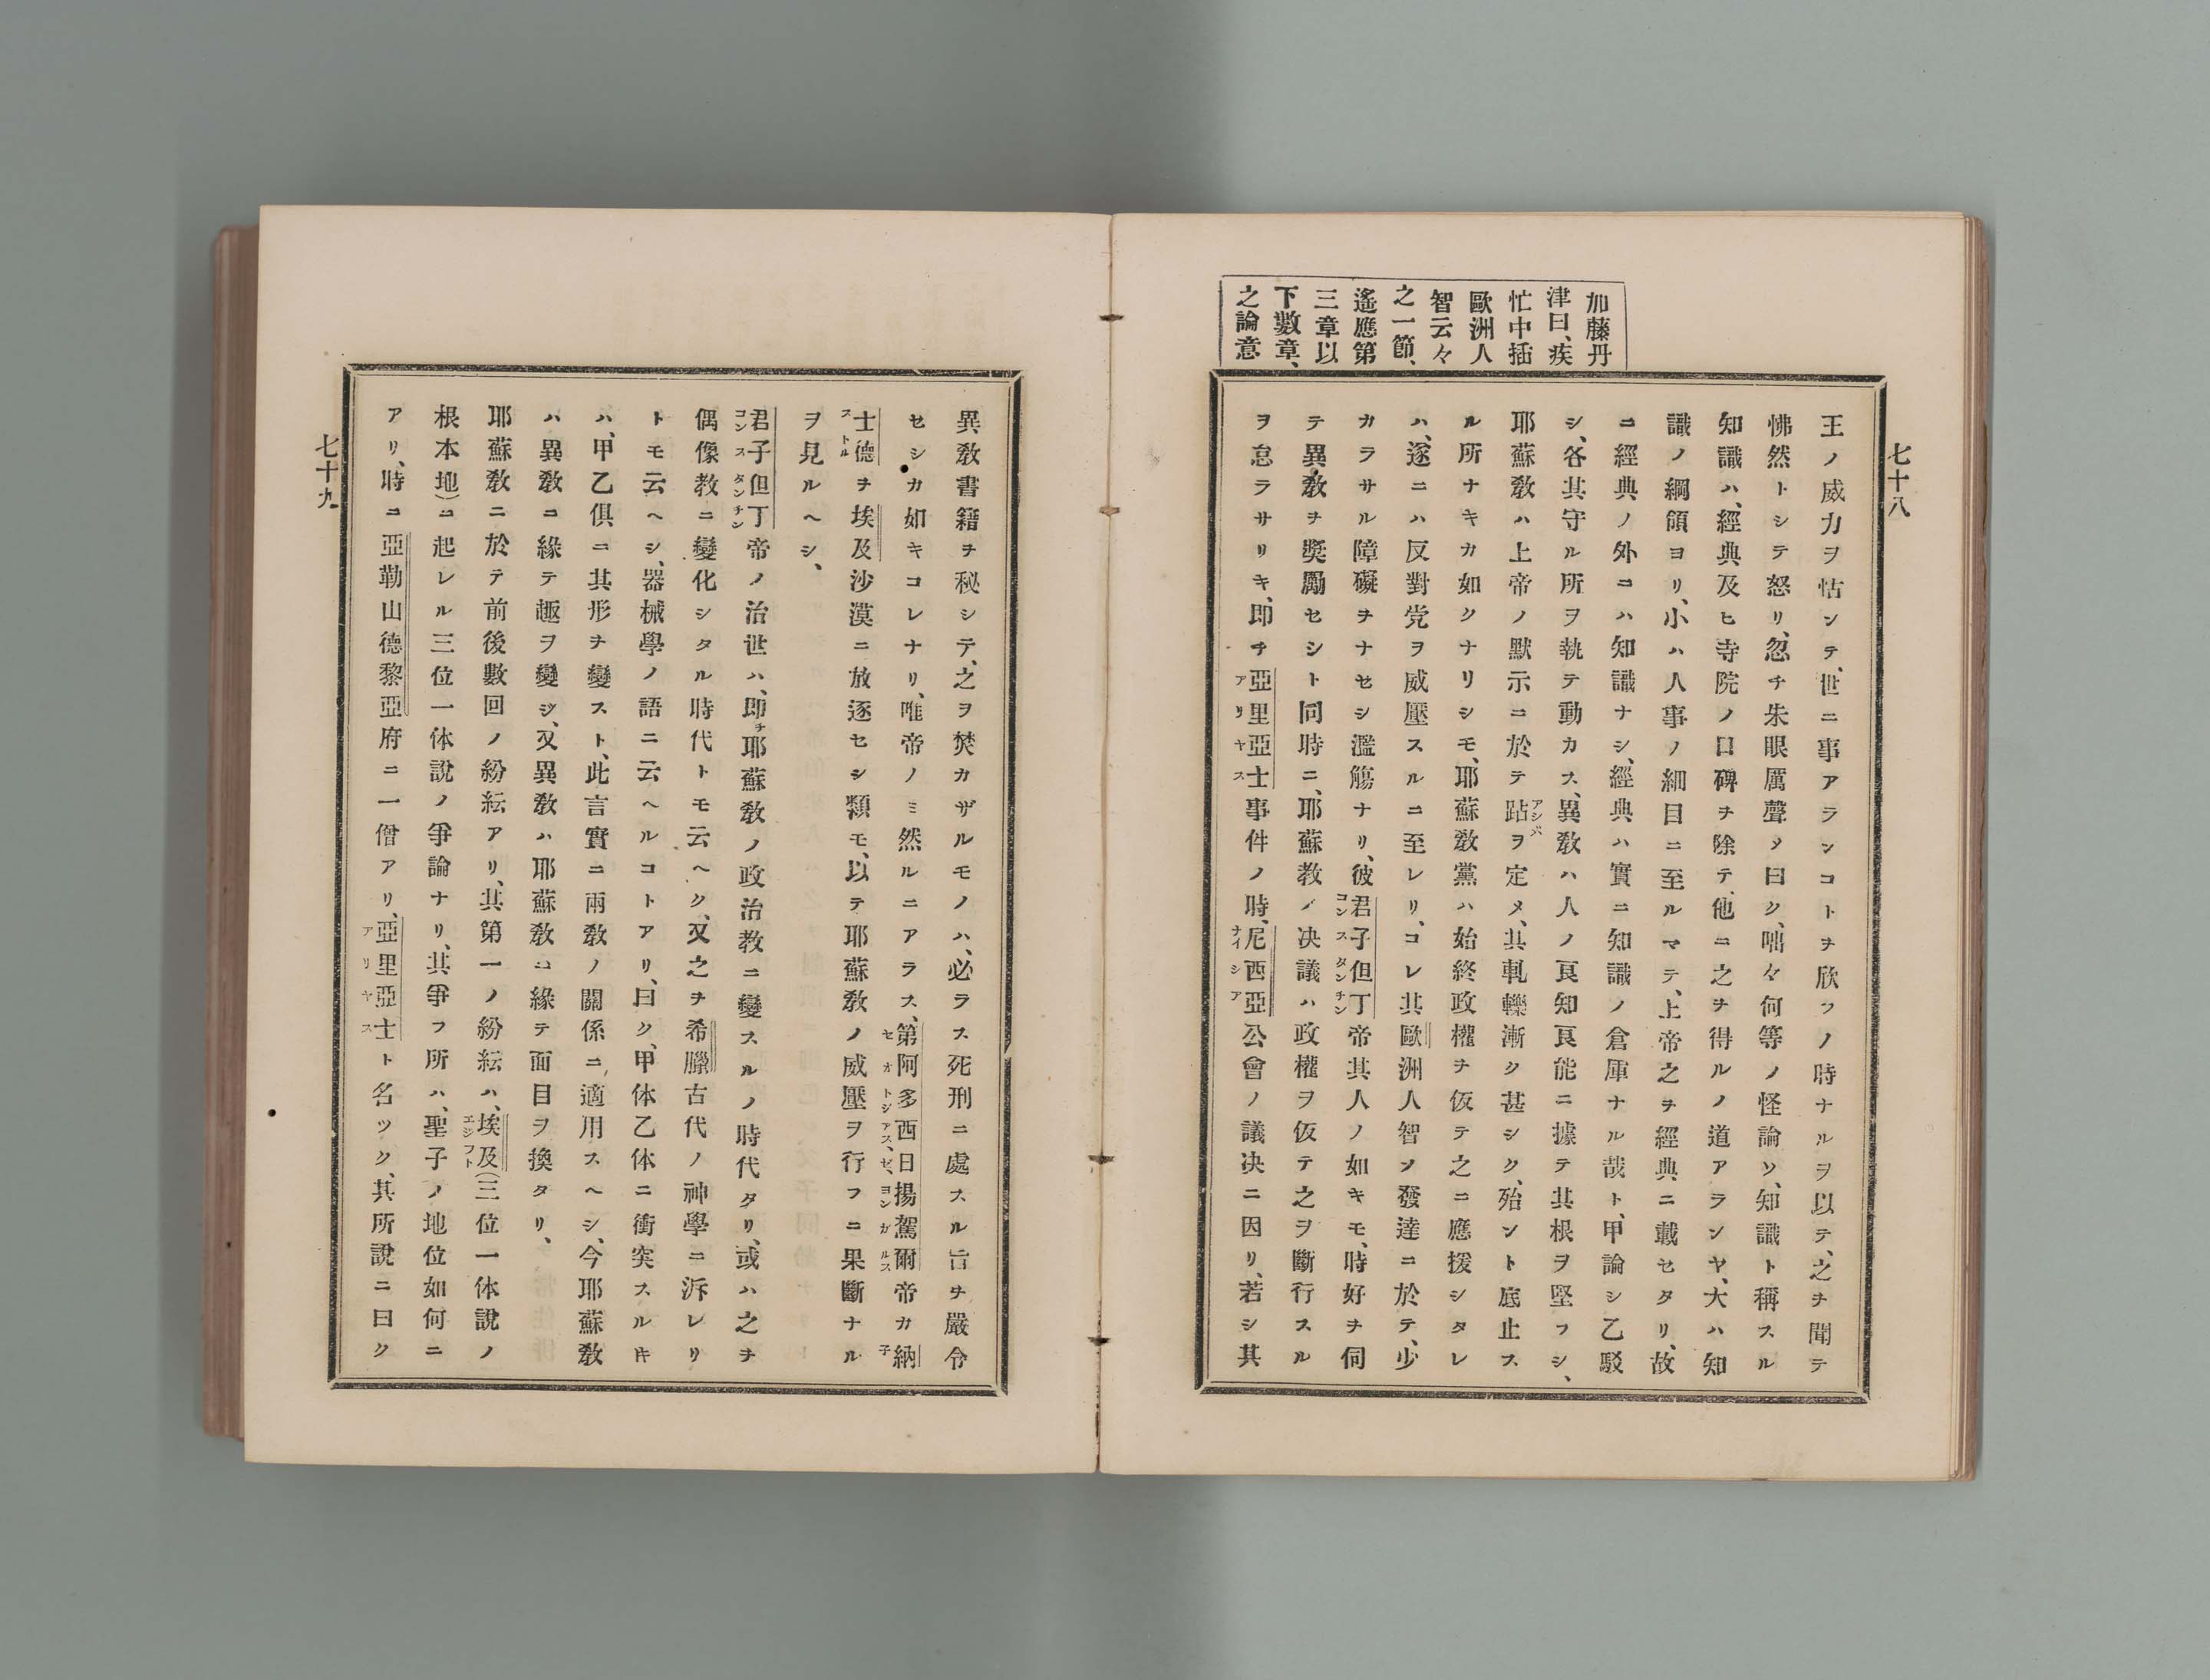 七十八
加藤丹
津曰、疾
忙中插
歐洲人
智云々
之一節、
遙應第
三章以
下數章、
之論意
王ノ威力ヲ怙ンテ、世ニ事アランコトヲ欣フノ時ナルヲ以テ、之ヲ聞テ
怫然トシテ怒リ、忽チ朱眼厲聲〆曰ク、咄々何等ノ怪論ソ、知識ト稱スル
知識ハ、經典及ヒ寺院ノ口碑ヲ除テ、他ニ之ヲ得ルノ道アランヤ、大ハ知
識ノ綱領ヨリ、小ハ人事ノ細目ニ至ルマテ、上帝之ヲ經典ニ載セタリ、故
ニ經典ノ外ニハ知識ナシ、經典ハ實ニ知識ノ倉庫ナル哉ト、甲論シ乙駁
シ、各其守ル所ヲ執テ動カス、異敎ハ人ノ良知良能ニ據テ其根ヲ堅フシ、
耶蘇敎ハ上帝ノ默示ニ於テ跕アシバヲ定メ、其軋轢漸ク甚シク、殆ント底止ス
ル所ナキカ如クナリシモ、耶蘇敎黨ハ始終政權ヲ仮テ之ニ應援シタレ
ハ、遂ニハ反對党ヲ威壓スルニ至レリ、コレ其歐洲人智ノ發達ニ於テ、少
カラサル障礙ヲナセシ濫觴ナリ、彼君子但丁コンスタンチン帝其人ノ如キモ、時好ヲ伺
テ異敎ヲ奬勵セシト同時ニ、耶蘇教ノ決議ハ政權ヲ仮テ之ヲ斷行スル
ヲ怠ラサリキ、即チ亞里亞士アリヤス事件ノ時、尼西亞ナイシア公會ノ議决ニ因リ、若シ其
異敎書籍ヲ秘シテ、之ヲ焚カザルモノハ、必ラス死刑ニ處スル旨ヲ嚴令
セシカ如キコレナリ、唯帝ノミ然ルニアラス、第阿多西日揚駕爾セオトジアス、ゼ、ヨンガルス帝カ納子
士德ストルヲ埃及沙漠ニ放逐セシ類モ、以テ耶蘇敎ノ威壓ヲ行フニ果斷ナル
ヲ見ルヘシ、
君子但丁コンスタンチン帝ノ治世ハ、即チ耶蘇敎ノ政治教ニ變スルノ時代タリ、或ハ之ヲ
偶像教ニ變化シタル時代トモ云ヘク、又之ヲ希臘古代ノ神學ニ泝レリ
トモ云ヘシ、器械學ノ語ニ云ヘルコトアリ、曰ク、甲体乙体ニ衝突スルキ
ハ、甲乙俱ニ其形ヲ變スト、此言實ニ兩敎ノ關係ニ適用スヘシ、今耶蘇敎
ハ異敎ニ緣テ趣ヲ變シ、又異敎ハ耶蘇敎ニ緣テ面目ヲ換タリ、
耶蘇敎ニ於テ前後數回ノ紛紜アリ、其第一ノ紛紜ハ、埃及エジフト(三位一体說ノ
根本地)ニ起レル三位一体說ノ爭論ナリ、其爭フ所ハ、聖子ノ地位如何ニ
アリ、時ニ亞勒山德黎亞府ニ一僧アリ、亞里亞士アリヤスト名ツク、其所說ニ曰ク
七十九